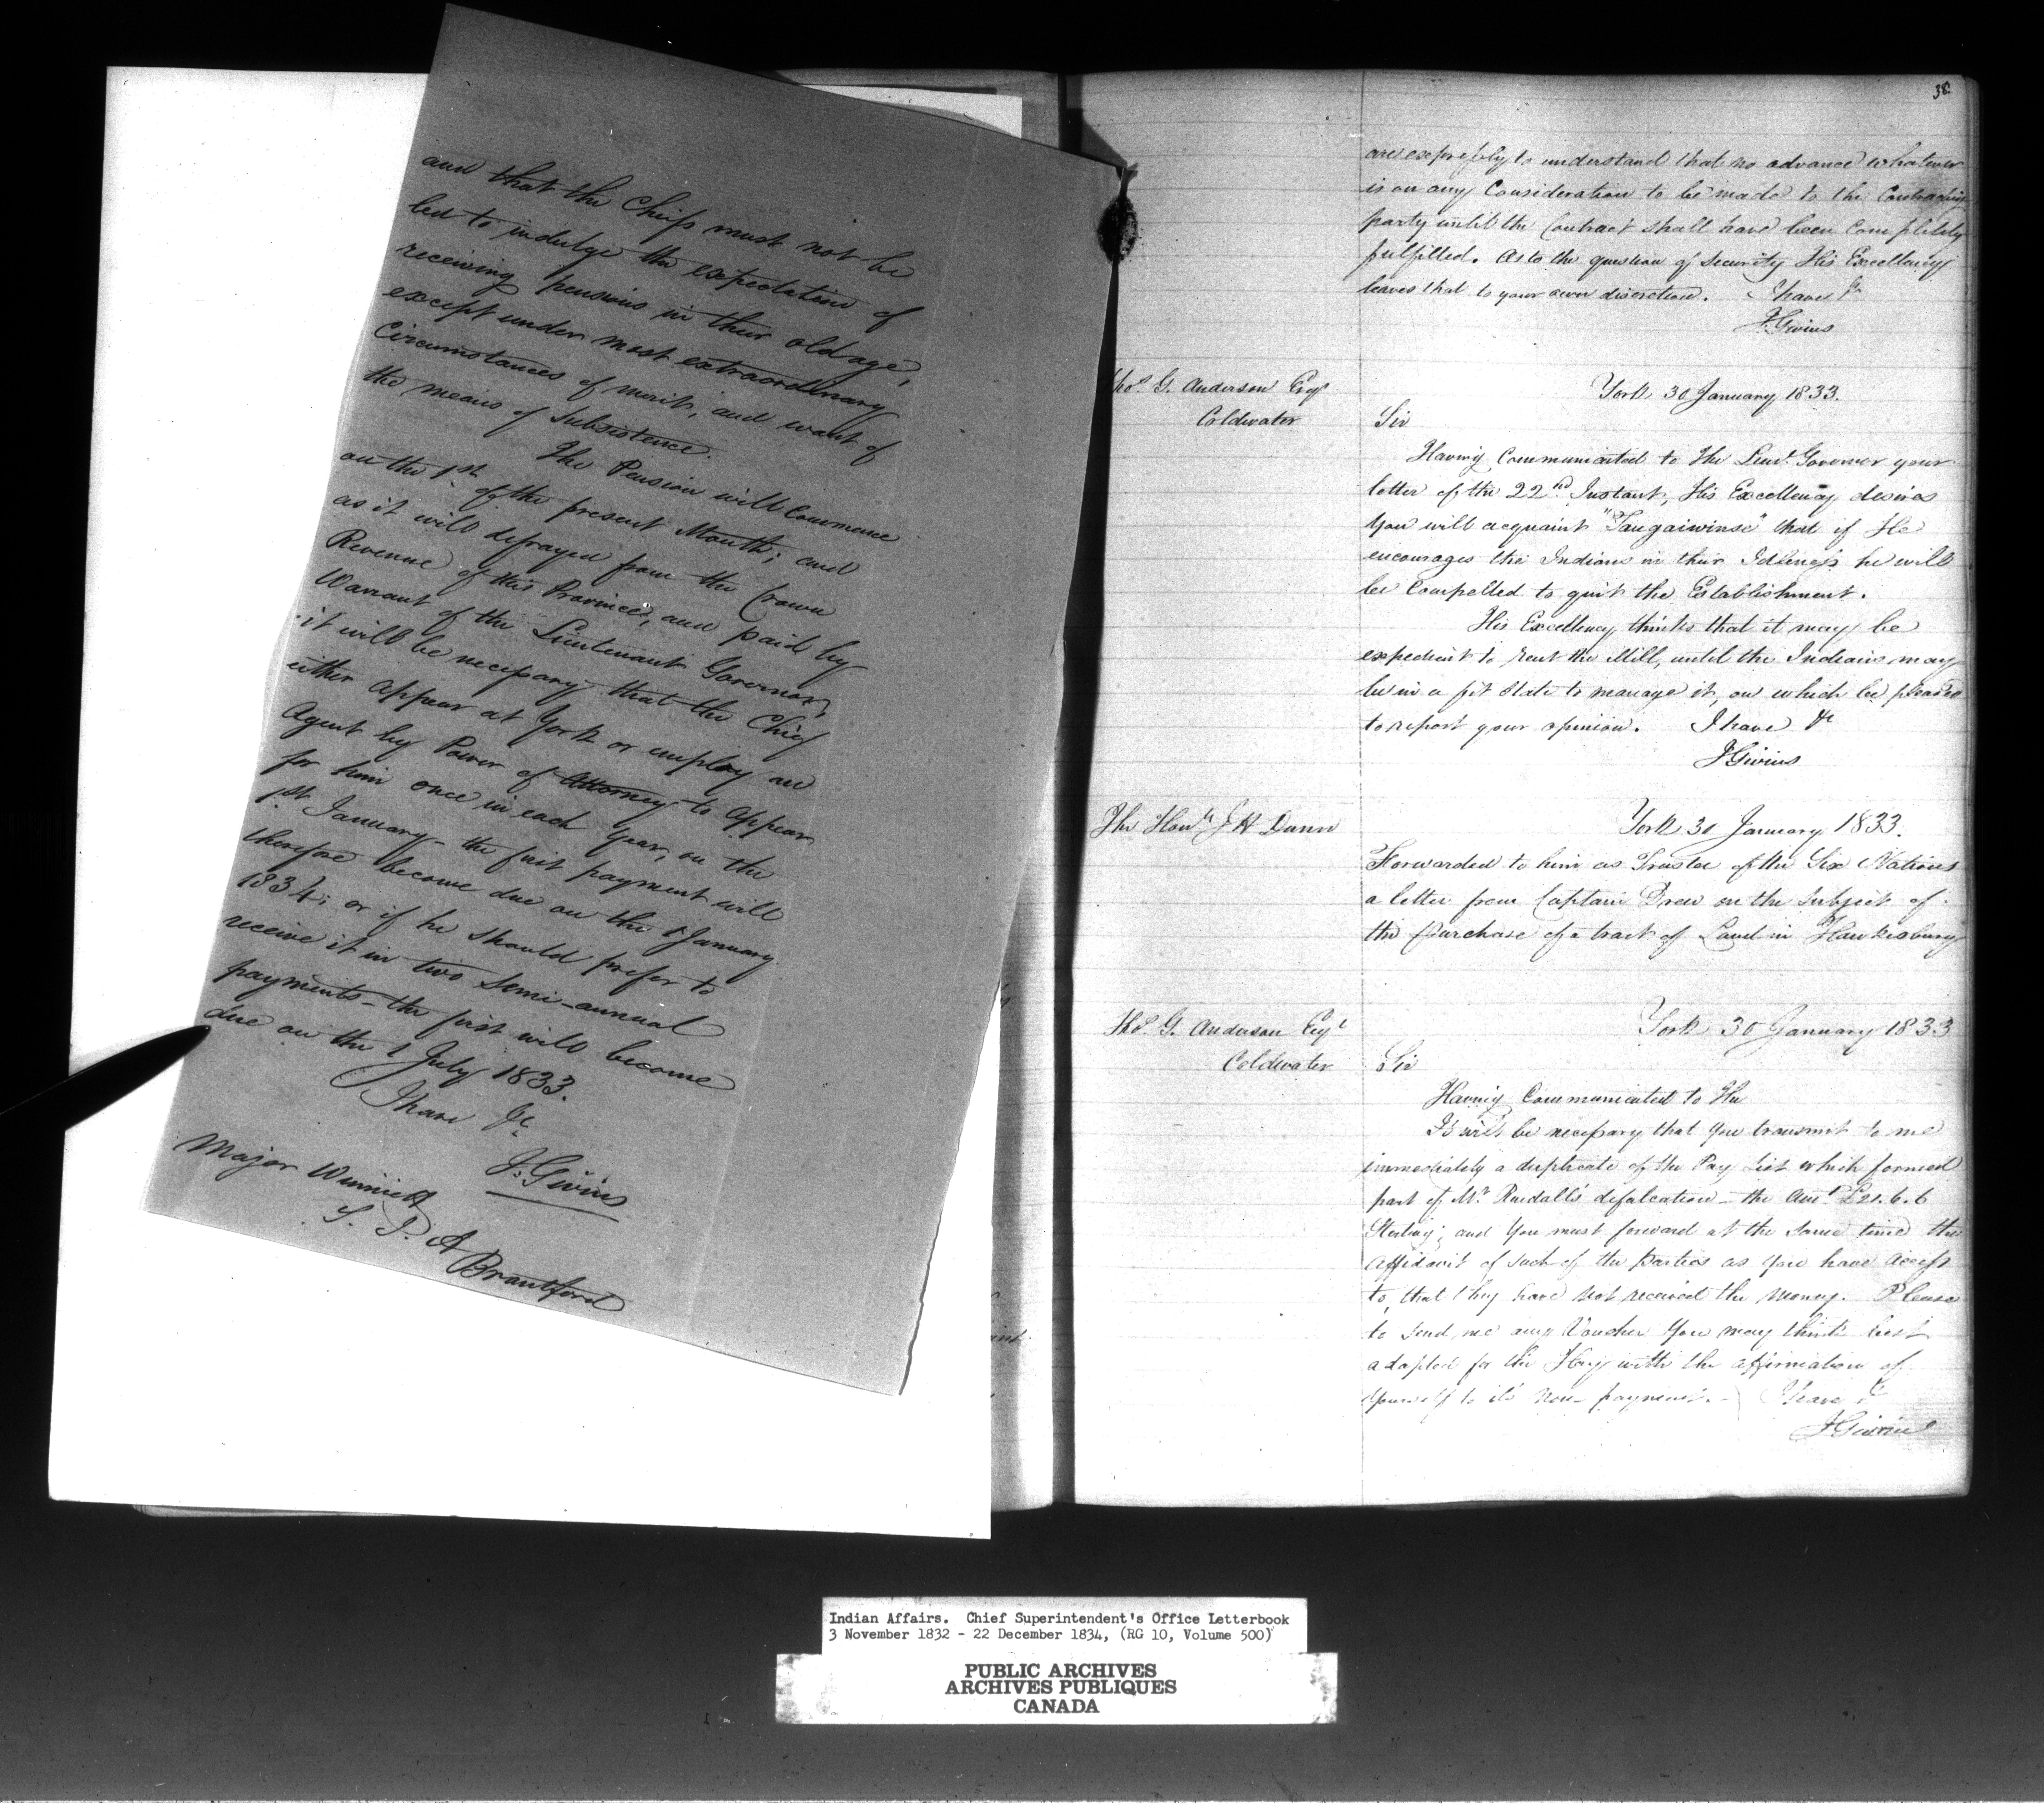 and that the Chiefs must not be
led to indulge the expectation of
receiving pensions in their old age,
except under most extraordinary
Circumstances of merit, and want of
the means of Subsistence.
The Pension will Commence
on the 1st. of the present Month; and
as it will defrayed from the Crown
Revenue of this Province, and paid by
Warrant of the Lieutenant Governor,
it will be necessary that the Chief
either appear at York or employ an
Agent by Power of Attorney to appear
for him once in each year, on the
1st January - the first payment will
therefore become due on the 1 January
1834; or if he should prefer to
receive it in two semi-annual
payments - the first will become
due on the 1 July 1833.
I have &c
J. Givins
Major Winniett
S. I. A
Brantford
38
are expressly to understand that no advance whatever
is on any Consideration to be made to the Contracting
party until the Contract shall have been Completely
fulfilled. As to the question of security His Excellency
leaves that to your own discretion. I have &c
J. Givins
Thos. G. Anderson Esqr
Coldwater
York 30 January 1833.
Sir
Having Communicated to The Lieut. Governor your
letter of the 22nd. Instant, His Excellency desires
you will acquaint "Taugaiwinse" that if He
encourages the Indians in their Idleness he will
be Compelled to quit the Establishment.
His Excellency thinks that it may be
expedient to rent the Mill, until the Indians may
be in a fit state to manage it, on which be pleased
to report your opinion. I have &c
J Givins
The Honle J H Dunn
York 30 January 1833.
Forwarded to him as Trustee of the Six Nations
a letter from Captain Drew on the Subject of
the purchase of a tract of Land in Hawkesbury
Thos. G. Anderson Esqr
Coldwater
York 30 January 1833
Sir
Having Communicated to The
It will be necessary that you transmit to me
immediately a duplicate of the Pay List which formed
part of Mr Randall's defalcation - the Amt £21.6.6
Sterling; and you must forward at the same time the
Affidavit of such of the parties as you have access
to, that they have not received the money. Please
to send me any Voucher you may think best
adapted for the Hay with the affirmation of
yourself to its non-payment. - I have &c
J Givins
Indian Affairs. Chief Superintendent's Office Letterbook
3 November 1832 - 22 December 1834, (RG 10, Volume 500)
PUBLIC ARCHIVES
ARCHIVES PUBLIQUES
CANADA